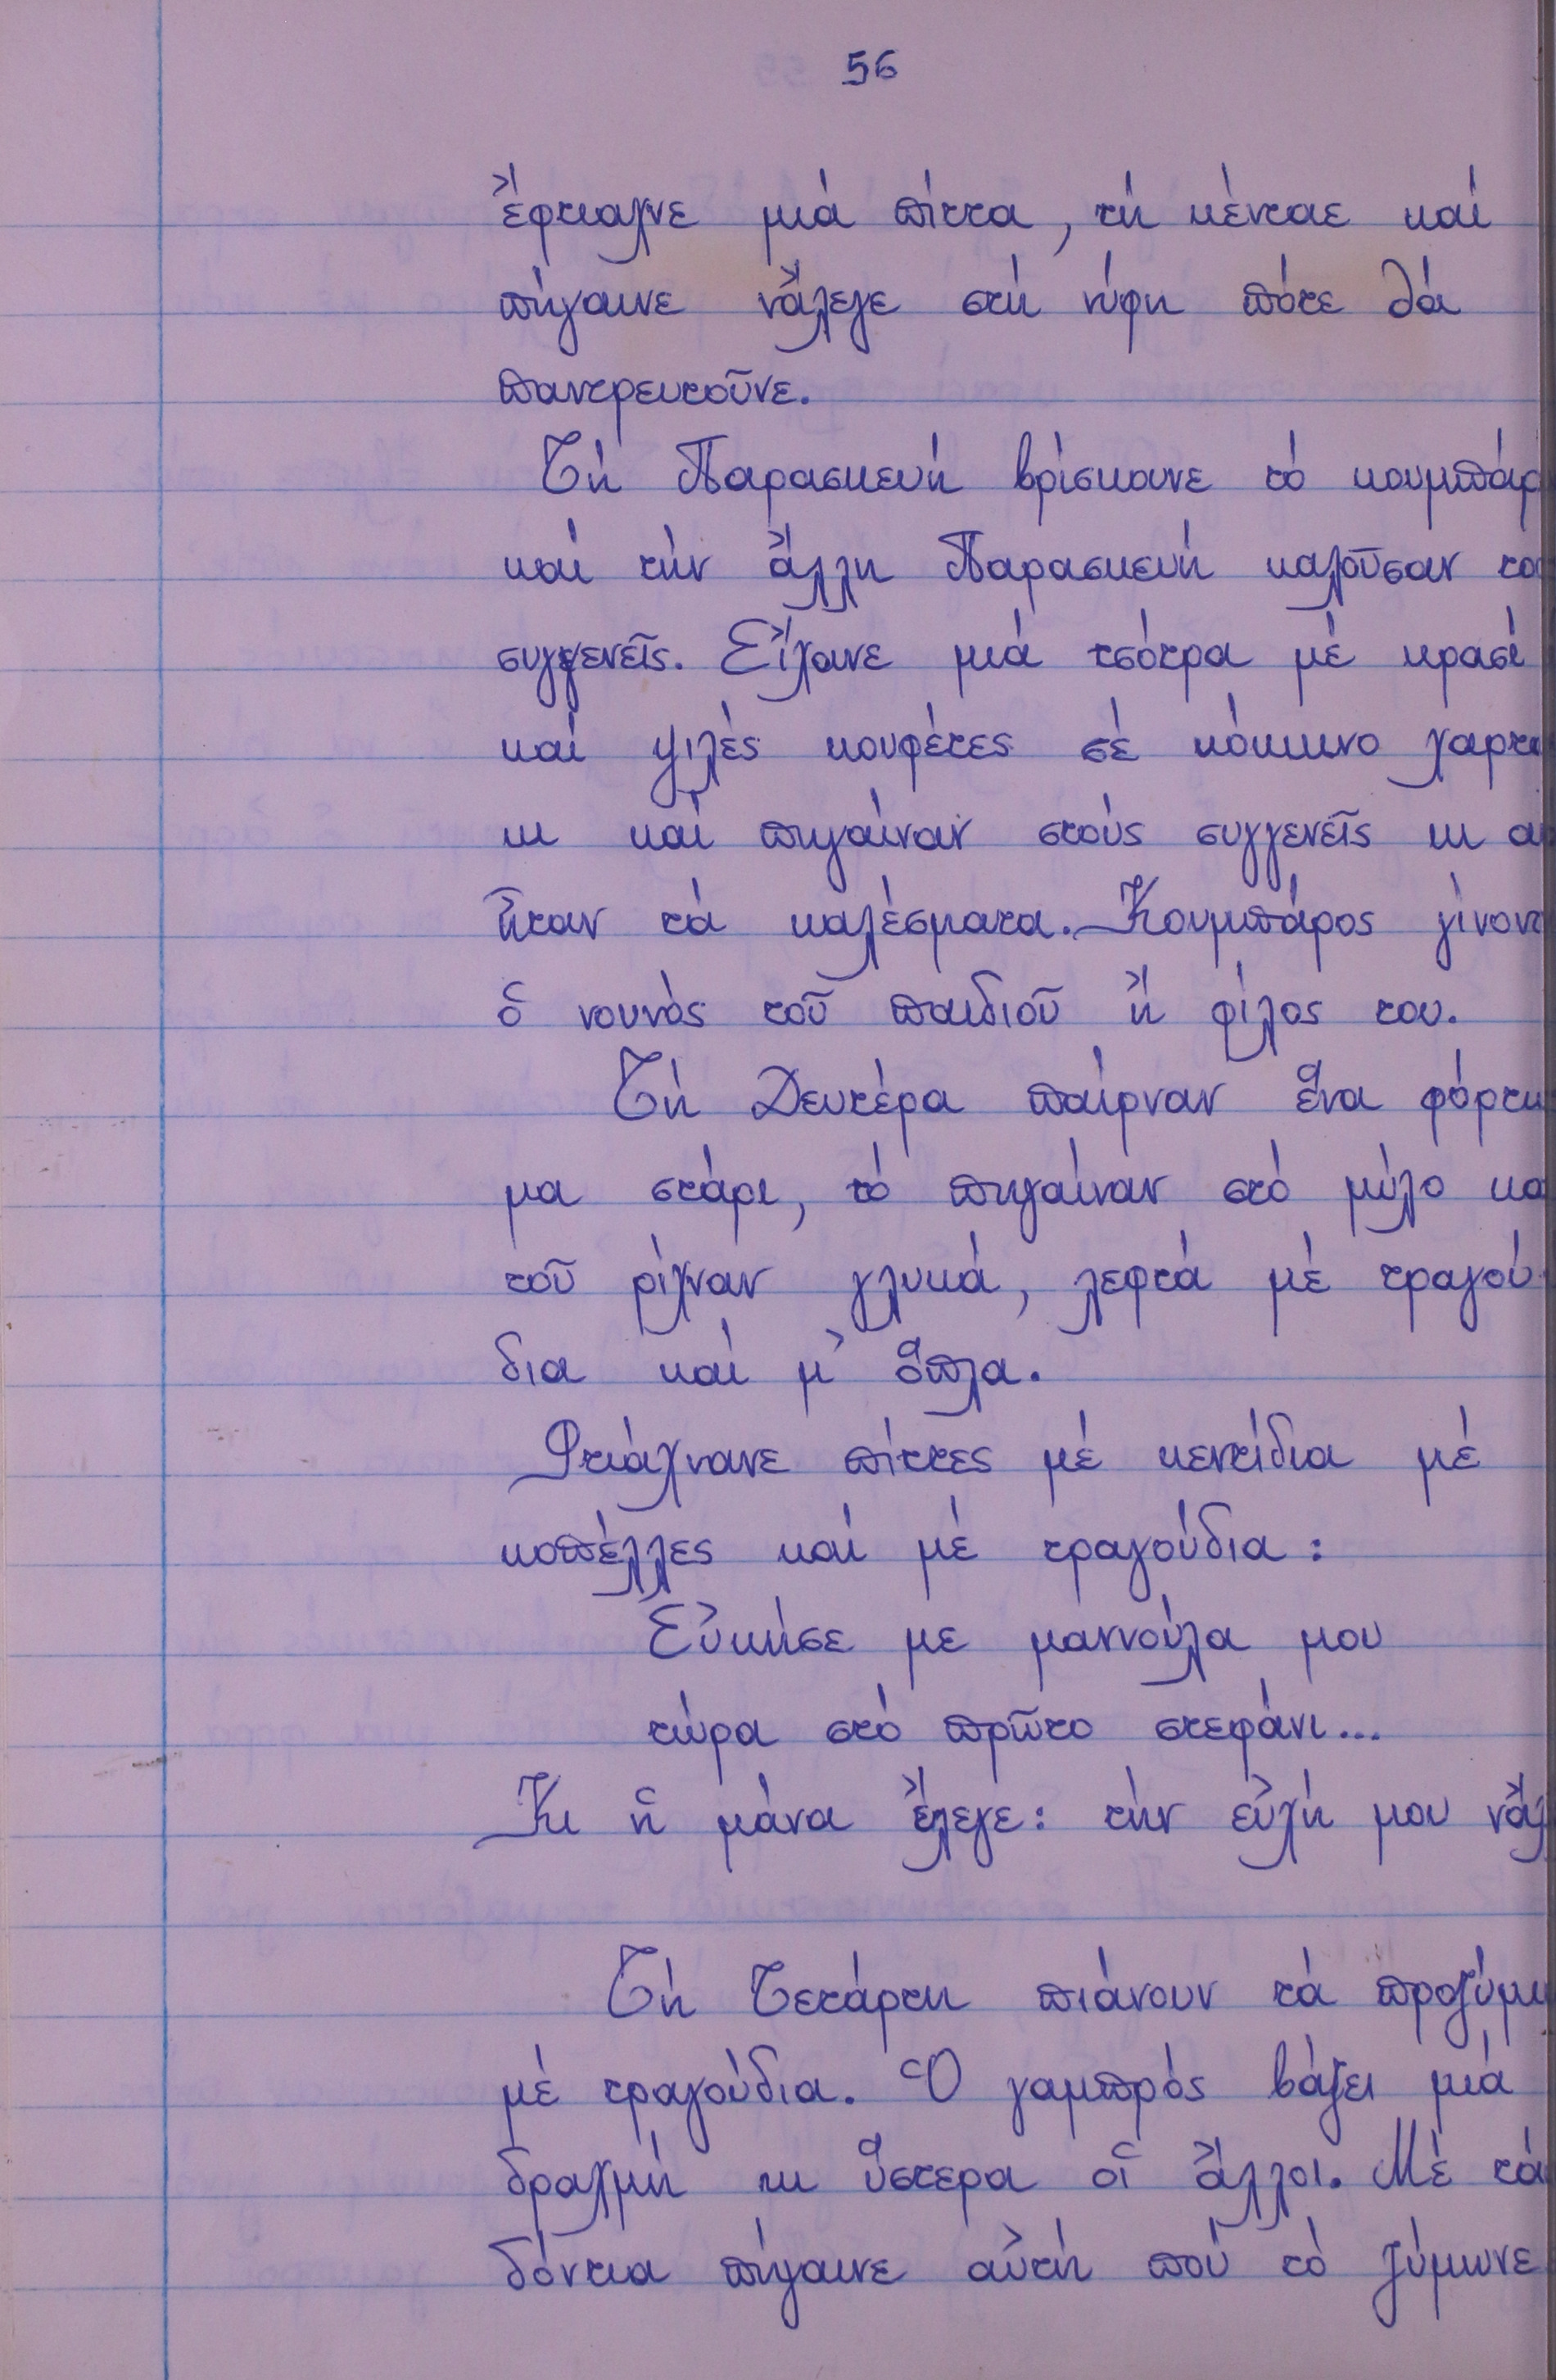 56
ἔφτιαχνε μιά πίττα, τή κένταε καί
πήγαινε νἄλεγε στή νύφη πότε θά
παντρευτοῦνε.
Τή Παρασκευή βρίσκουνε τό κουμπάρ
καί τήν ἄλλη Παρασκευή καλοῦσαν το
συγγενεῖς. Εἴχανε μιά τσότρα μέ κρασί
καί ψιλές κουφέτες σέ κόκκινο χαρτ
κι καί πηγαίναν στούς συγγενεῖς κι α
ἦταν τά καλέσματα. Κουμπάρος γίνοντ
ὁ νουνός τοῦ παιδιοῦ ἤ φίλος του.
Τή Δευτέρα παίρναν ἕνα φόρτω
μα στάρι, τό πηγαίναν στό μύλο κα
τοῦ ρίχναν γλυκά, λεφτά μέ τραγού
δια καί μ' ὅπλα.
Φτιάχνανε πίττες μέ κεντίδια μέ
κοπέλλες καί μέ τραγούδια:
Εὐκήσε με μαννούλα μου
τώρα στό πρῶτο στεφάνι...
Κι ἡ μάνα ἔλεγε: τήν εὐχή μου νἄχ
Τή Τετάρτη πιάνουν τά προζύμι
μέ τραγούδια. Ὁ γαμπρός βάζει μιά
δραχμή κι ὕστερα οἱ ἄλλοι. Μέ τά
δόντια πήγαινε αὐτή πού τό ζύμωνε